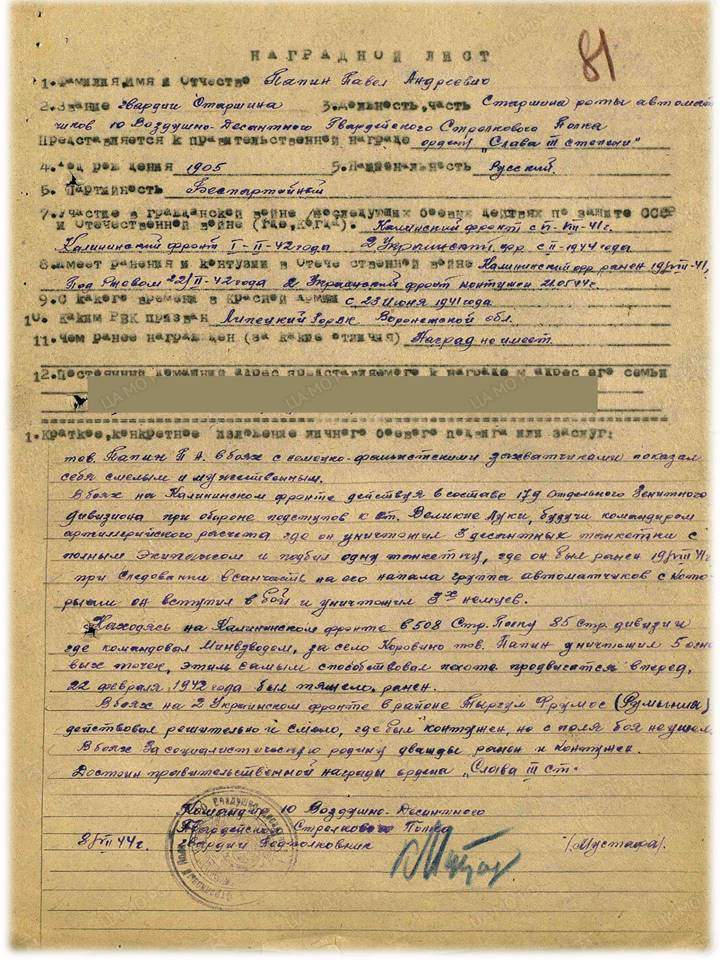 81
НАГРАДНОЙ ЛИСТ
1. Фамилия, имя и Отчество Папин Павел Андреевич
2. Звание гвардии Старшина 3. Должность, часть Старшина роты автомат
чиков 10 Воздушно-Десантного Гвардейского Стрелкового Полка
Представляется к правительственной награде орден „Слава III степени"
4. Год рождения 1905 5. Национальность Русский
6. Партийность Беспартийный
7. Участие в гражданской войне, последующих боевых действиях по защите СССР
и Отечественной войне (где, когда). Калинский фронт с VI-VIII-41г.
Калининский фронт I-II-42 года 2 Украинский фр с II-1944 года
8. Имеет ранения и контузии в Отечественной войне Калининский фр ранен 19/VIII-41,
Под Ржевом 22/II-42 года 2 Украинский фронт контужен 21.05.44г.
9. С какого времени в Красной Армии с 23 Июня 1941 года
10. Каким РВК призван Липецкий ГорВК Воронежской обл.
11. Чем ранее награжден (за какие отличия) Наград не имеет
12. Постоянный домашний адрес представляемого к награде и адрес его семьи
1. Краткое, конкретное изложение личного боевого подвига или заслуг:
тов. Папин П А. в боях с немецко-фашистскими захватчиками показал
себя смелым и мужественным.
В боях на Калининском фронте действуя в составе 179 отдельного Зенитного
дивизиона при обороне подступов к ст. Великие Луки, будучи командиром
артиллерийского расчета где он уничтожил 3 десантных танкетки с
полным Экипажем и подбил одну танкетку, где он был ранен 19/VIII 41г
при следовании в санчасть на его напала группа автоматчиков с кото-
рыми он вступил в бой и уничтожил 3х немцев.
Находясь на Калининском фронте в 508 Стр. Полку 85 стр. дивизии
где командовал Минвзводом, за село Коровино тов. Папин уничтожил 5 огне-
вых точек, этим самым способствовал пехоте продвигатся вперед,
22 февраля 1942 года был тяжело ранен.
В боях на 2 Украинском фронте в районе Тыргул Фрумос (Румыния)
действовал решительно и смело, где был контужен, но с поля боя не ушел.
В боях за социалистическую родину дважды ранен и контужен.
Достоин правительственной награды ордена „Слава III ст."
Командир 10 Воздушно-Десантного
Гвардейского Стрелкового Полка
8/VII 44г. гвардии Подполковник /Мустафа/.